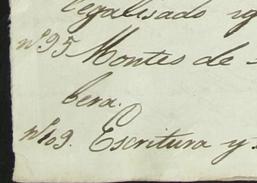 legalisado
nº 95 Montes de
bera.
nº 109. Escritura y